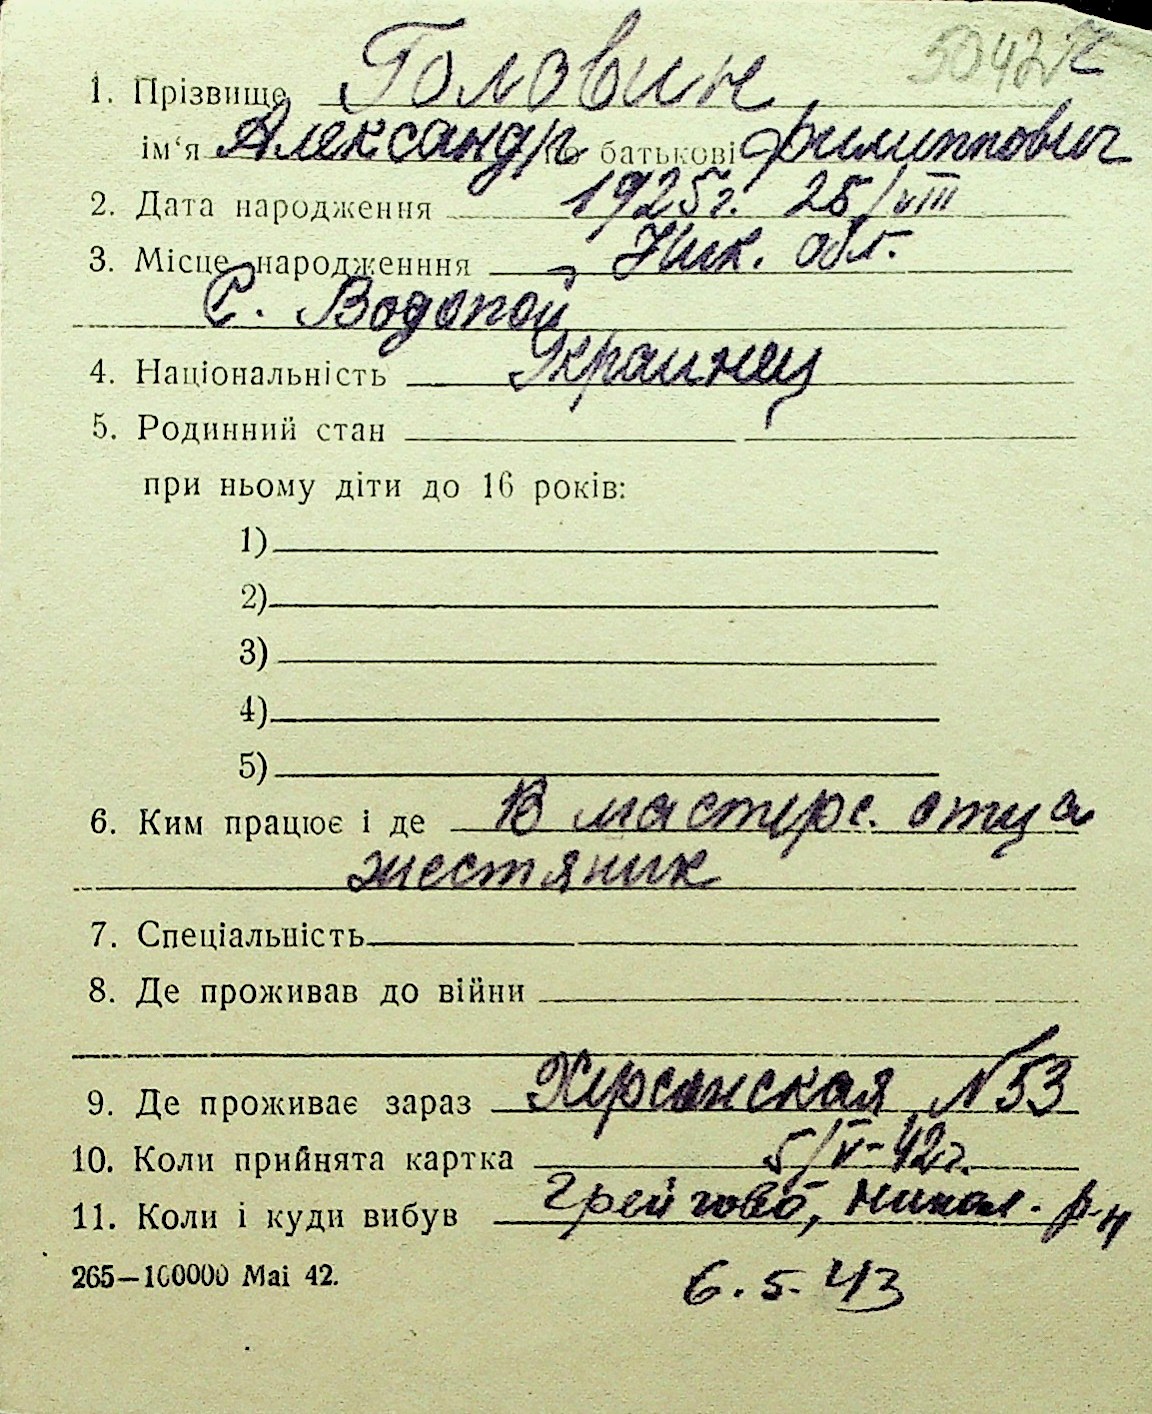 5042
1. Прізвище Головин
ім‘я Александр по батькові Филиппович
2. Дата народження 1925г. 25/VIII
3. Місце народженння Ник. обл.
С. Водопой
4. Національність Украинец
5. Родинний стан
при ньому діти до 16 років:
1)
2)
3)
4)
5)
6. Ким працює і де В мастерс. отца
жестяник
7. Спеціальність
8. Де проживав до війни
9. Де проживає зараз Херсонская N53
10. Коли прийнята картка 5/V-42г.
11. Коли і куди вибув Грейгово, Никол. р-н
265—100000 Mai 42. 6.5.43